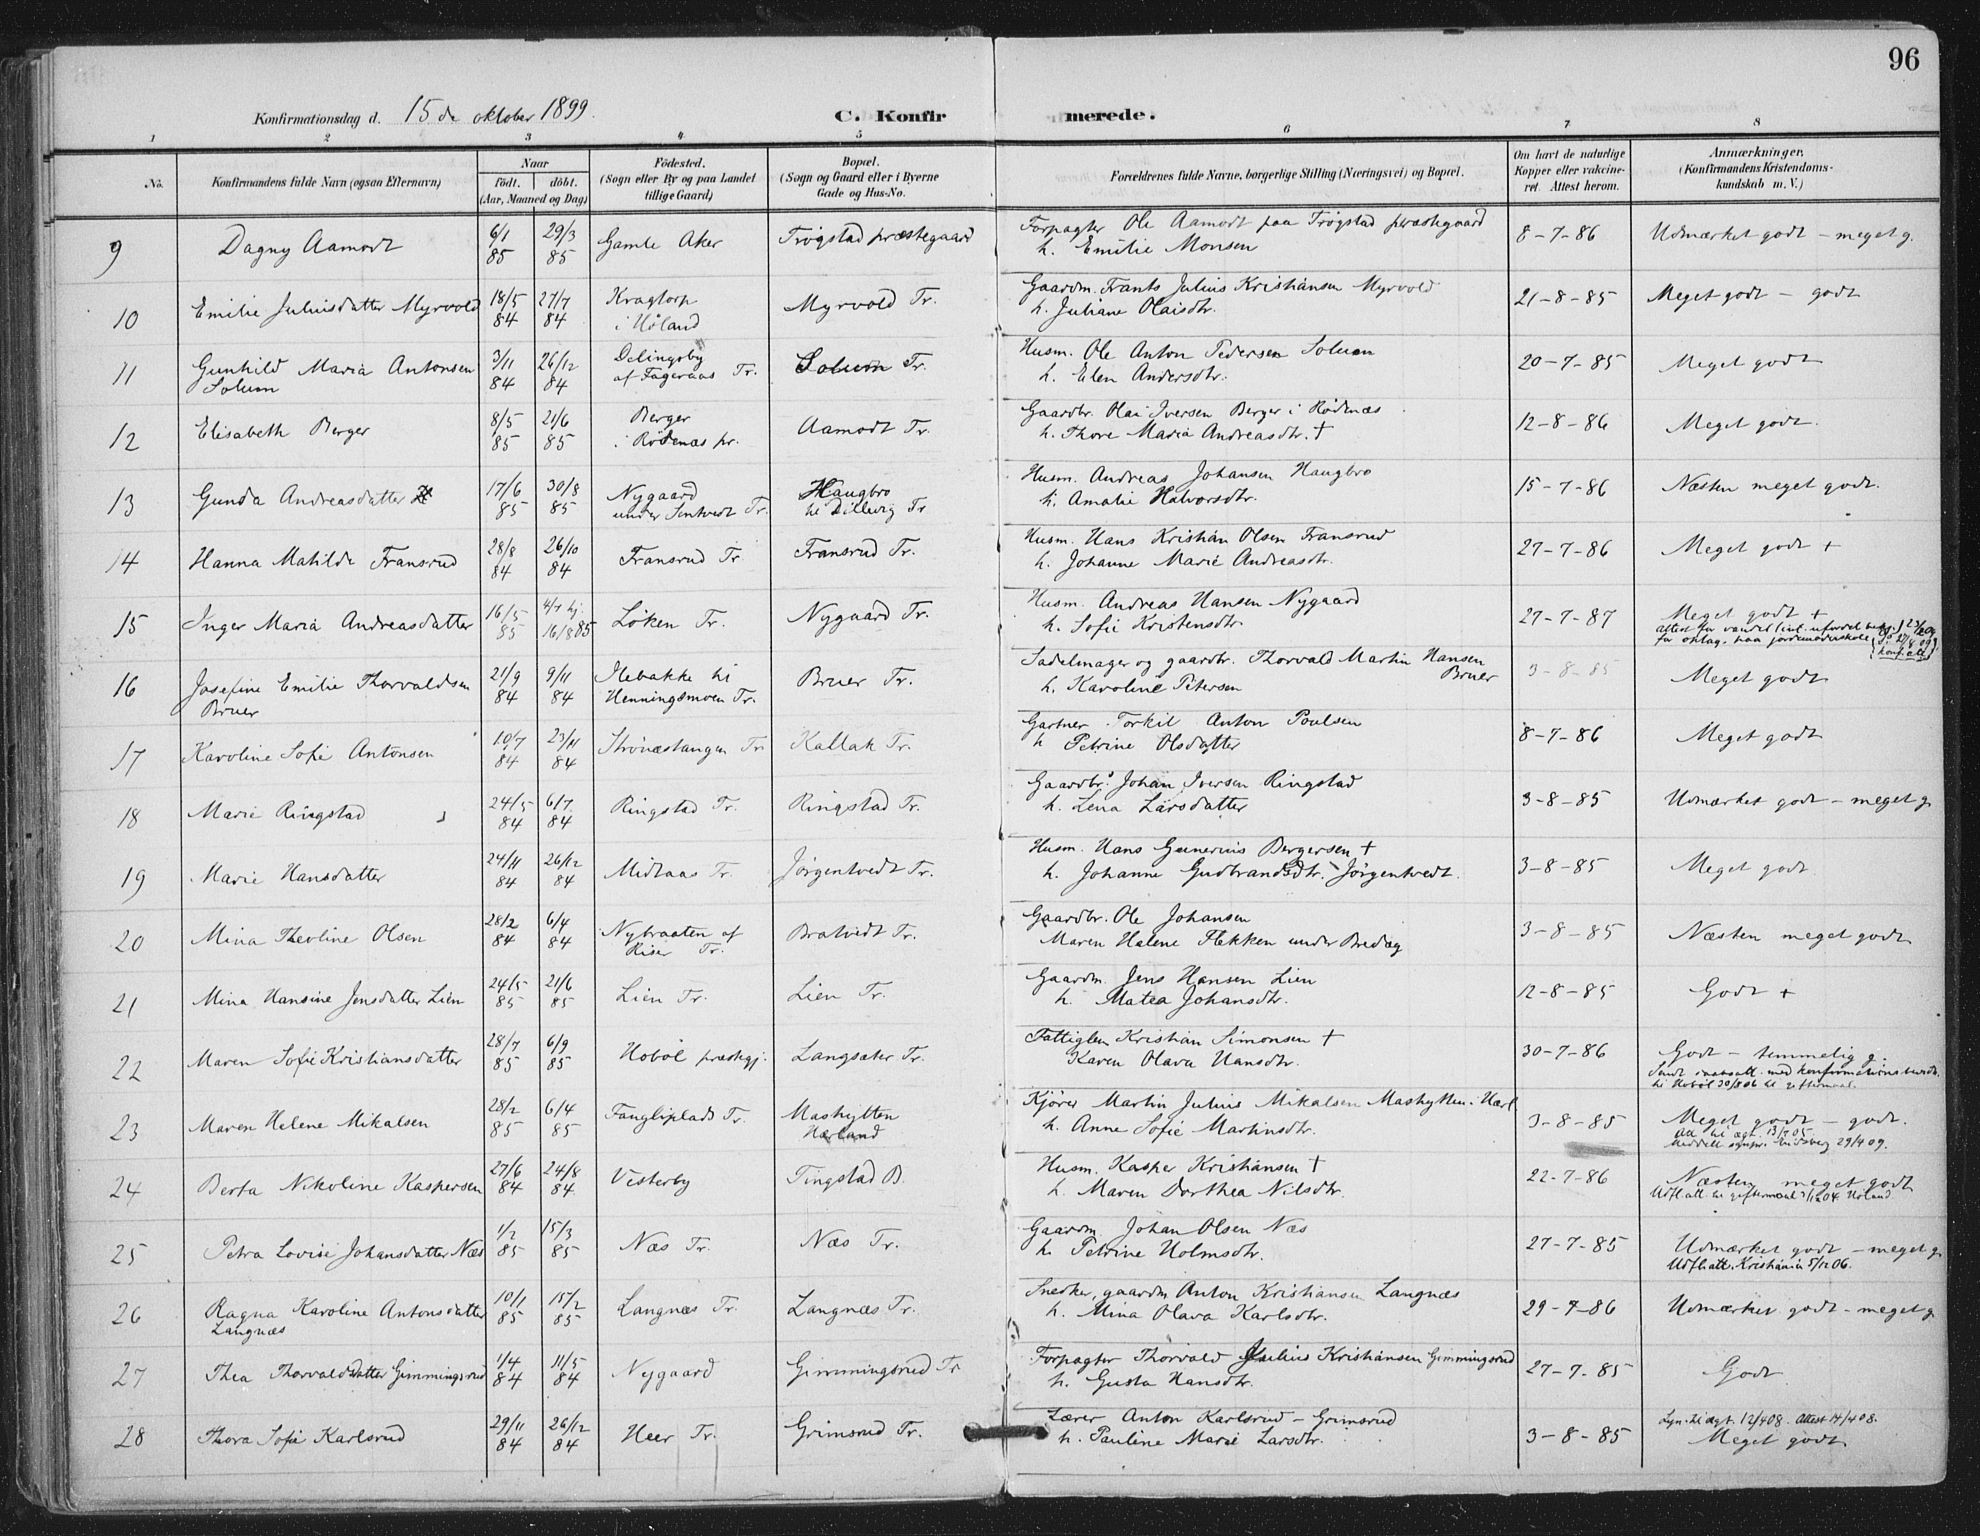 96
Konfirmationsdag d. 15de oktober 1899. C. Konfirmerede.
1 2 3 4 5 6 7 8
No. Konfirmandens fulde Navn (ogsaa Efternavn) Naar født. døbt. (Aar, Maaned og Dag) Fødested. (Sogn eller By og paa Landet tillige Gaard) Bopæl. (Sogn og Gaard eller i Byerne Gade og Hus-No. Forældrenes fulde Navne, borgerlige Stilling (Næringsvei) og Bopæl. Om havt de naturlige Kopper eller vakcineret. Attest herom. Anmærkninger. (Konfirmandens Kristendomskundskab m. V.)
9 Dagny Aamodt 6/1 85 29/3 85 Gamle Aker Trøgstad præstegaard Forpagter Ole Aamodt paa Trøgstad præstegaard h. Emilie Monsen 8-7-86 Udmærket godt - meget g.
10 Emilie Juliusdatter Myrvold 18/5 84 27/7 84 Kragtorp i Høland Myrvold Tr. Gaardm. Frants Julius Kristiansen Myrvold h. Juliane Olaisdtr. 21-8-85 Meget godt - godt
11 Gunhild Maria Antonsen Solum 3/11 84 26/12 84 Delingsby af Fageraas Tr. Solum Tr. Husm. Ole Anton Pedersen Solum h. Elen Andersdtr. 20-7-85 Meget godt
12 Elisabeth Berger 8/5 85 21/6 85 Berger i Rødenæs pr. Aamodt Tr. Gaardbr. Olai Iversen Berger i Rødenæs h. Thore Maria Andreasdtr. † 12-8-86 Meget godt.
13 Gunda Andreasdatter 17/6 85 30/8 85 Nygaard under Sentvedt Tr. Haugbro til Dillevig Tr Husm. Andreas Johansen Haugbro h. Amalie Halvorsdtr. 15-7-86 Næsten meget godt.
14 Hanna Matilde Fransrud 28/8 84 26/10 84 Fransrud Tr Fransrud Tr. Husm. Hans Kristian Olsen Fransrud h. Johanne Marie Andreasdtr. 27-7-86 Meget godt +
15 Inger Maria Andreasdatter 16/5 85 4/7 hj. 16/8 85 Løken Tr. Nygaard Tr. Husm. Andreas Hansen Nygaard h. Sofie Kristensdtr. 27-7-87 Meget godt +
for optag. paa jordemoderskole
16 Josefine Emilie Thorvaldsen Bruer 21/9 84 9/11 84 Ilebakke til Henningsmoen Tr. Bruer Tr. Sadelmager og gaardbr. Thorvald Martin Hansen Bruer h. Karoline Petersen 3-8-85 Meget godt
17 Karoline Sofie Antonsen 10/7 84 23/11 84 Strønæstangen Tr. Kallak Tr. Gartner Torkil Anton Poulsen h Petrine Olsdatter 8-7-86 Meget godt
18 Marie Ringstad 24/5 84 6/7 84 Ringstad Tr. Ringstad Tr. Gaardbr. Johan Iversen Ringstad h. Lena Larsdatter 3-8-85 Udmærket godt - meget g.
19 Marie Hansdatter 24/11 84 26/12 84 Midtaas Tr. Jørgentvedt Tr. Husm. Hans Gunerius Bergersen † h. Johanne Gudbrandsdtr. Jørgentvedt. 3-8-85 Meget godt
20 Mina Theoline Olsen 28/2 84 6/4 84 Nybraaten af Riser Tr. Bratvedt Tr. Gaardbr. Ole Johansen Maren Halene Flekken under Bredæg 3-8-85 Næsten meget godt
21 Mina Hansine Jensdatter Lien 24/5 85 21/6 85 Lien Tr. Lien Tr. Gaardm. Jens Hansen Lien h. Matea Johansdtr. 12-8-85 Godt +
22 Maren Sofie Kristiansdatter 28/7 85 6/9 85 Hobøl præstegj. Langsæter Tr. Fattiglem Kristian Simonsen † Karen Olava Hansdtr. 30-7-86 Godt - temmelig g.
til Hobøl 30/8 06 til giftermaal.
23 Maren Helene Mikalsen 28/2 85 6/4 85 Fangliplads Tr. Mashytten Hærland Kjører Martin Julius Mikalsen Mashytten i Hærl h. Anne Sofie Martinsdtr. 3-8-85 Meget godt - godt.
Att. til ægt. 13/7 05.
24 Berta Nikoline Kaspersen 27/6 84 24/8 84 Vesterby Tingstad B. Husm. Kasper Kristiansen † h. Maren Dorthea Nilsdtr. 22-7-86 Næsten meget godt
Udfl.att. til giftermaal 7/12 04 Høland
25 Petra Lovise Johansdatter Næs 1/2 85 15/3 85 Næs Tr. Næs Tr. Gaardm Johan Olsen Næs h. Petrine Holmsdtr. 27-7-85 Udmærket godt - meget g.
Udfl.att. Kristiania 5/12 06.
26 Ragna Karoline Antonsdatter Langnæs 10/1 85 15/2 85 Langnæs Tr. Langnæs Tr. Snedker, gaardm Anton Kristiansen Langnæs h. Mina Olava Karlsdtr. 29-7-86 Udmærket godt - meget g
27 Thea Thorvaldsdatter Gimmingsrud 1/4 84 11/5 84 Nygaard Gimmingsrud Tr Forpagter Thorvald Julius Kristiansen Gimmingsrud h. Gusta Hansdtr. 27-7-85 Godt
28 Thora Sofie Karlsrud 29/11 84 26/12 84 Heer Tr. Grimsrud Tr. Lærer Anton Karlsrud - Grimsrud h. Pauline Marie Larsdtr. 3-8-85 Lysn. til ægt. 12/4 08. Attest 14/4 08.
Meget godt